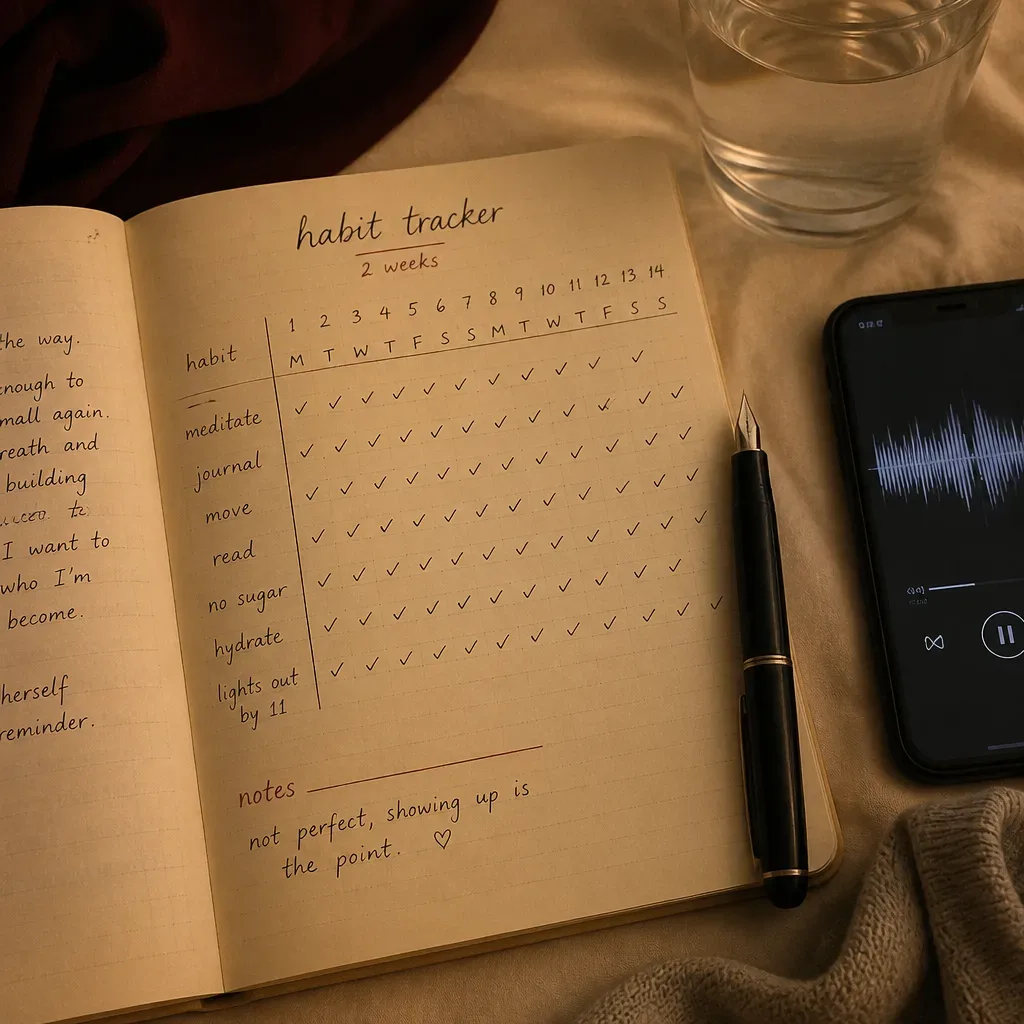 the way.
enough to
mall again.
reath and
building
I want to
who I'm
become.
herself
reminder.
habit tracker
2 weeks
1 2 3 4 5 6 7 8 9 10 11 12 13 14
habit M T W T F S S M T W T F S S
meditate ✓ ✓ ✓ ✓ ✓ ✓ ✓ ✓ ✓ ✓ ✓
journal ✓ ✓ ✓ ✓ ✓ ✓ ✓ ✓ ✓ ✓ ✓ ✓
move ✓ ✓ ✓ ✓ ✓ ✓ ✓ ✓ ✓ ✓ ✓ ✓
read ✓ ✓ ✓ ✓ ✓ ✓ ✓ ✓ ✓ ✓ ✓ ✓
no sugar ✓ ✓ ✓ ✓ ✓ ✓ ✓ ✓ ✓ ✓ ✓ ✓
hydrate ✓ ✓ ✓ ✓ ✓ ✓ ✓ ✓ ✓ ✓ ✓
lights out ✓ ✓ ✓ ✓ ✓ ✓ ✓ ✓ ✓ ✓ ✓ ✓
by 11
notes
not perfect, showing up is
the point. ♡